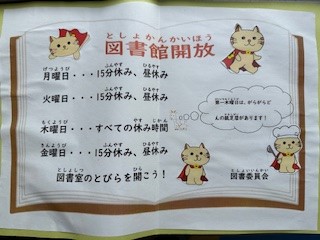 としょかんかいほう
図書館開放
げつようび ふんやす ひるやす
月曜日・・・15分休み、昼休み
かようび ふんやす ひるやす
火曜日・・・15分休み、昼休み
もくようび やす じかん
木曜日・・・すべての休み時間
第一木曜日は、がらがらど
んの紙芝居があります！
きんようび ふんやす ひるやす
金曜日・・・15分休み、昼休み
としょしつ ひら
図書室のとびらを開こう！
としょいいんかい
図書委員会